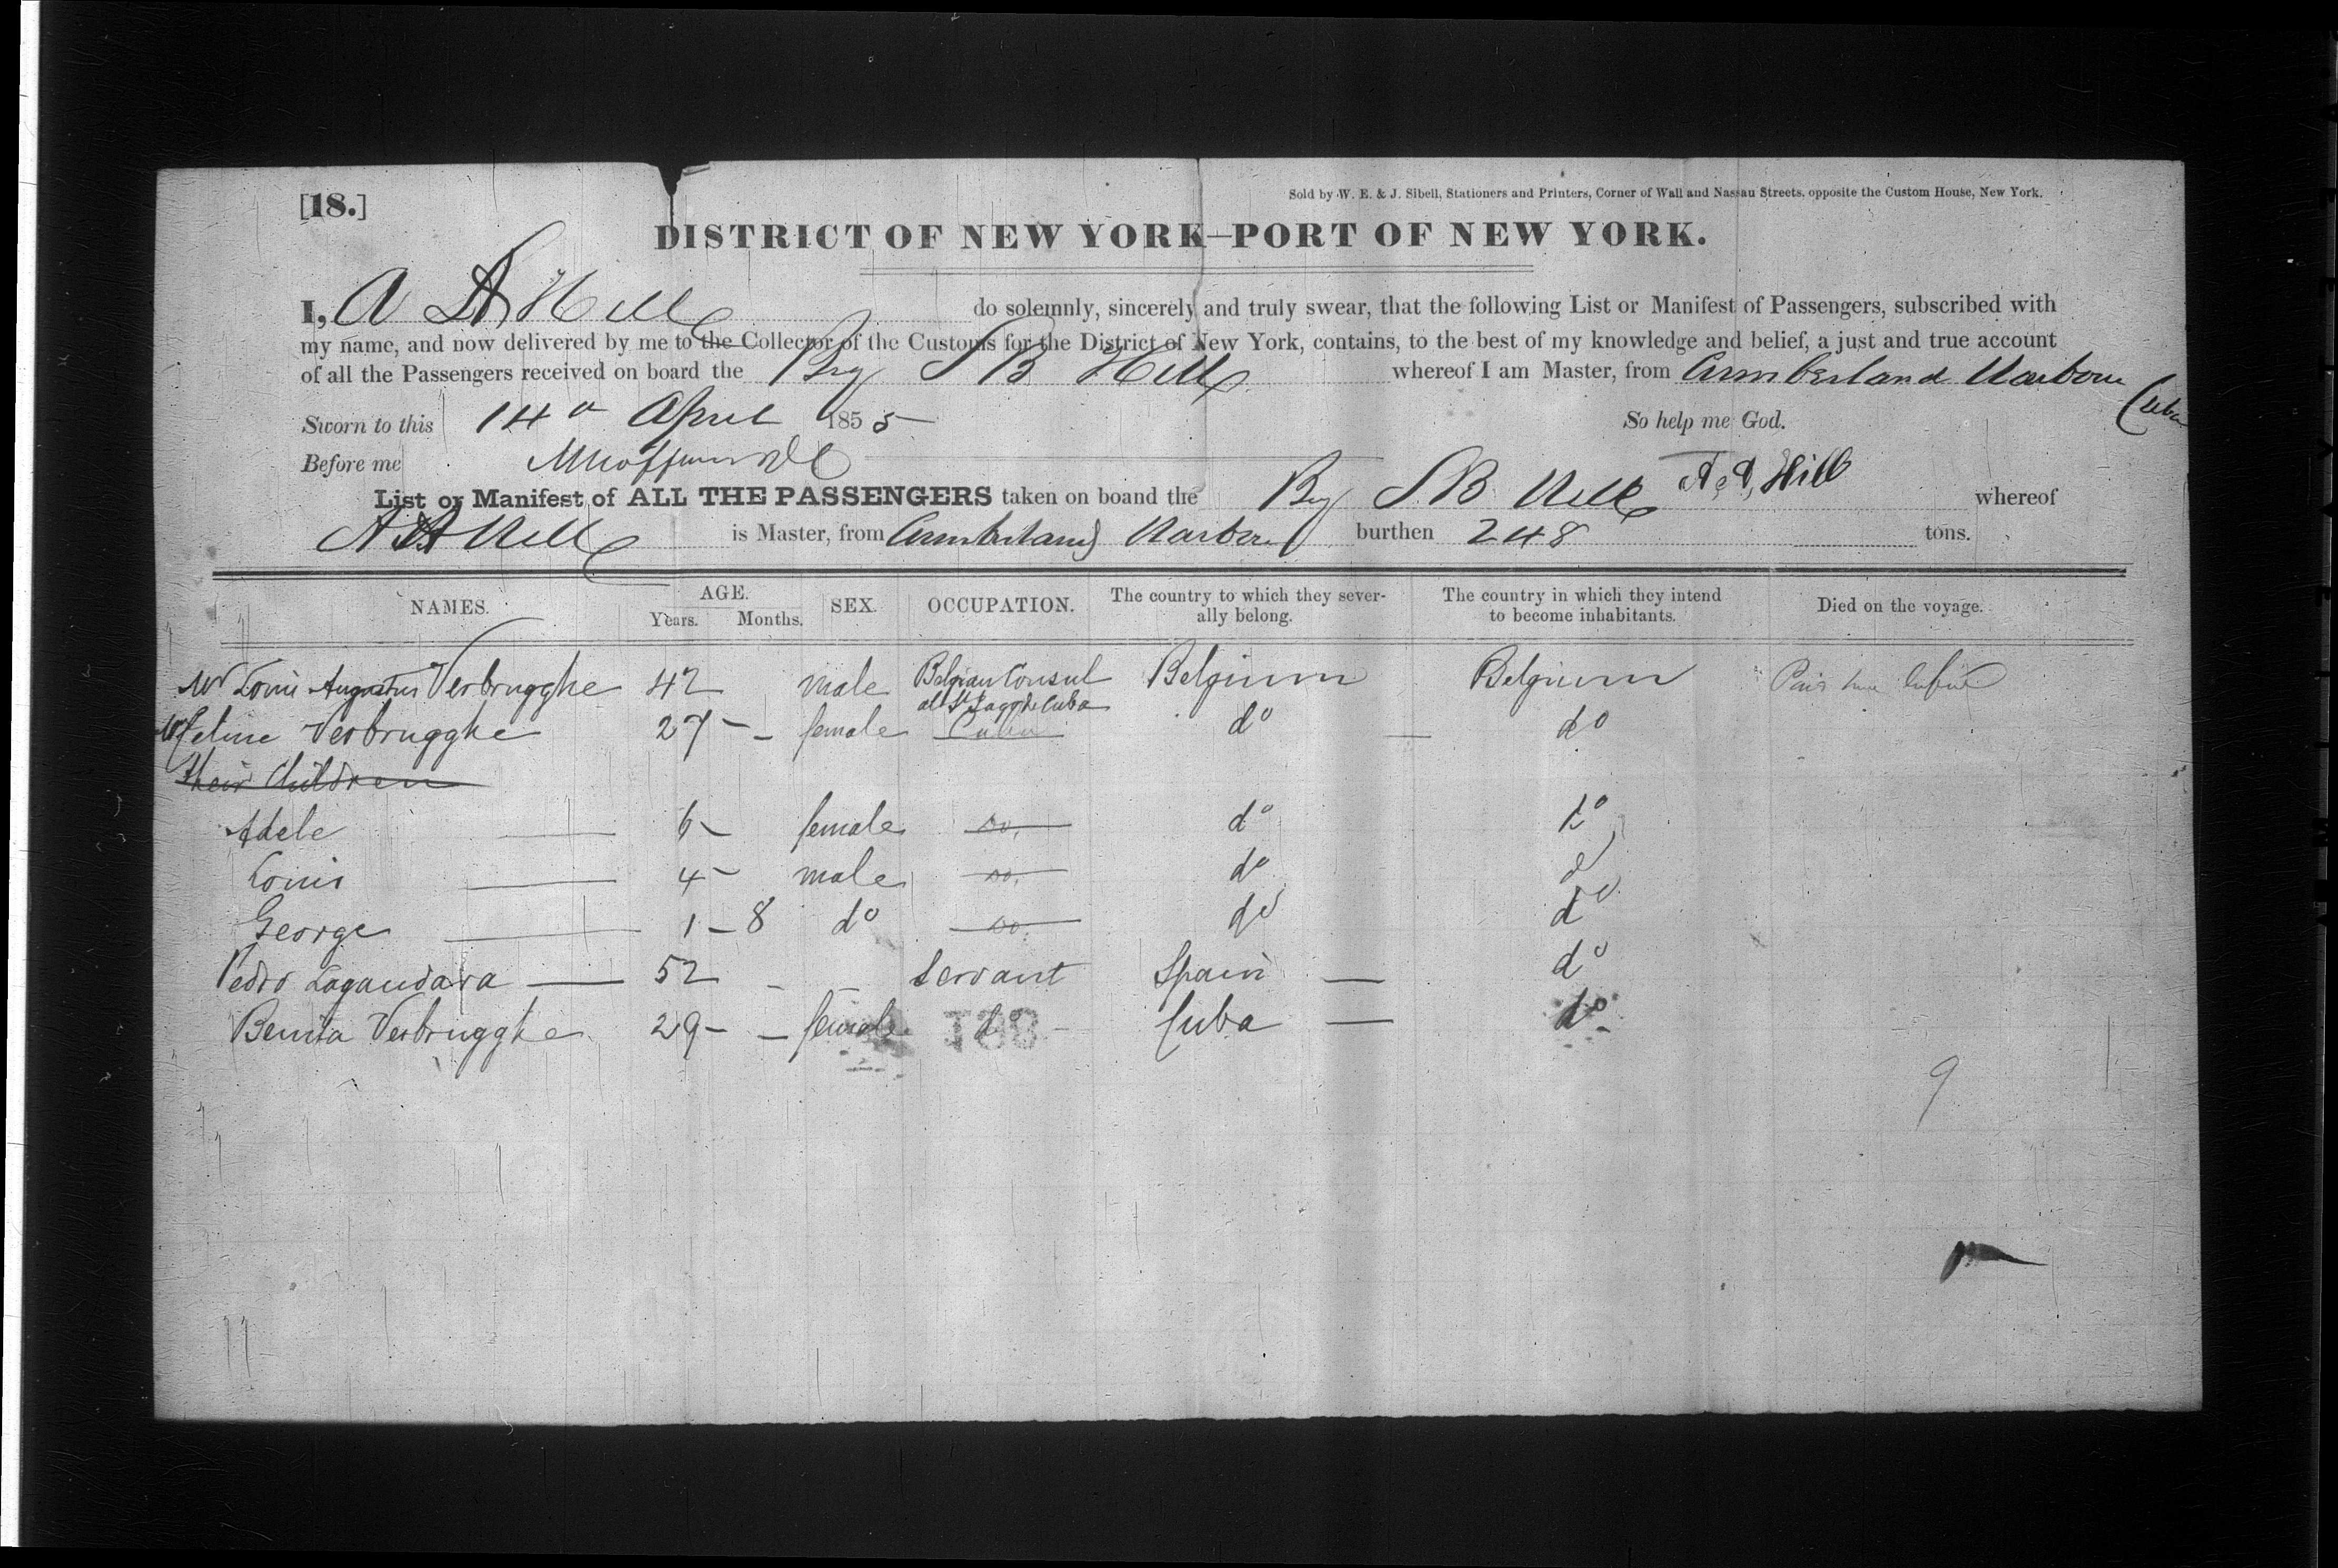 [18.]
Sold by W. E. & J. Sibell, Stationers and Printers, Corner of Wall and Nassau Streets, opposite the Custom House, New York.
DISTRICT OF NEW YORK—PORT OF NEW YORK.
I, A A Hill do solemnly, sincerely and truly swear, that the following List or Manifest of Passengers, subscribed with
my name, and now delivered by me to the Collector of the Customs for the District of New York, contains, to the best of my knowledge and belief, a just and true account
of all the Passengers received on board the Brig S B Hill whereof I am Master, from Cumberland Harbour Cuba
Sworn to this 14th April 1855 So help me God.
Before me A, A, Hill
List or Manifest of ALL THE PASSENGERS taken on boand the Brig S B Hill whereof
A A Hill is Master, from Cumberland Harbour burthen 248 tons.
NAMES. AGE. Years. Months. SEX. OCCUPATION. The country to which they severally belong. The country in which they intend to become inhabitants. Died on the voyage.
Mr Louis Augustus Verbrugghe 42 male Belgian Consul at St Jago de Cuba Belgium Belgium
Verbrugghe 27 – – female Cuba do do
Their Children
Adele 6 – female do. do do
Louis 4 – male do. do do
George 1 – 8 do do. do do
Pedro Lagandara 52 – servant Spain do
Benita Verbrugghe 29 – – female do Cuba do
9